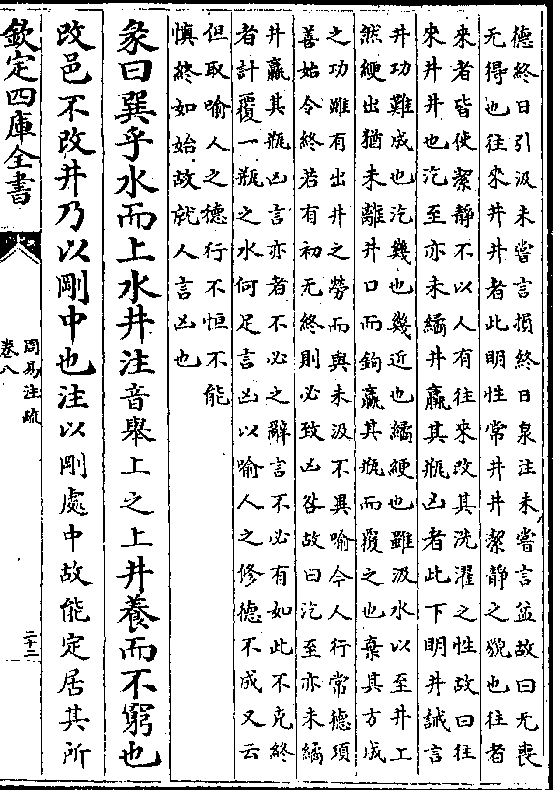 德終日引汲未嘗言損終日泉注未嘗言益故曰无喪
无得也往來井井者此明性常井井㓗静之貌也往者
來者皆使㓗静不以人有往來改其洗濯之性故曰往
來井井也汔至亦未繘井羸其瓶凶者此下明井誠言
井功難成也汔幾也幾近也繘綆也雖汲水以至井上
然綆出猶未離井口而鉤羸其瓶而覆之也棄其方成
之功雖有出井之勞而與未汲不異喻今人行常德須
善始令終若有初无終則必致凶咎故曰汔至亦未繘
井羸其瓶凶言亦者不必之辭言不必有如此不克終
者計覆一瓶之水何足言凶以喻人之修德不成又云
但取喻人之德行不恒不能
慎終如始故就人言凶也
彖曰巽乎水而上水井注音舉上之上井養而不窮也
改邑不改井乃以剛中也注以剛處中故能定居其所
欽定四庫全書
周易注疏
卷八
二十二